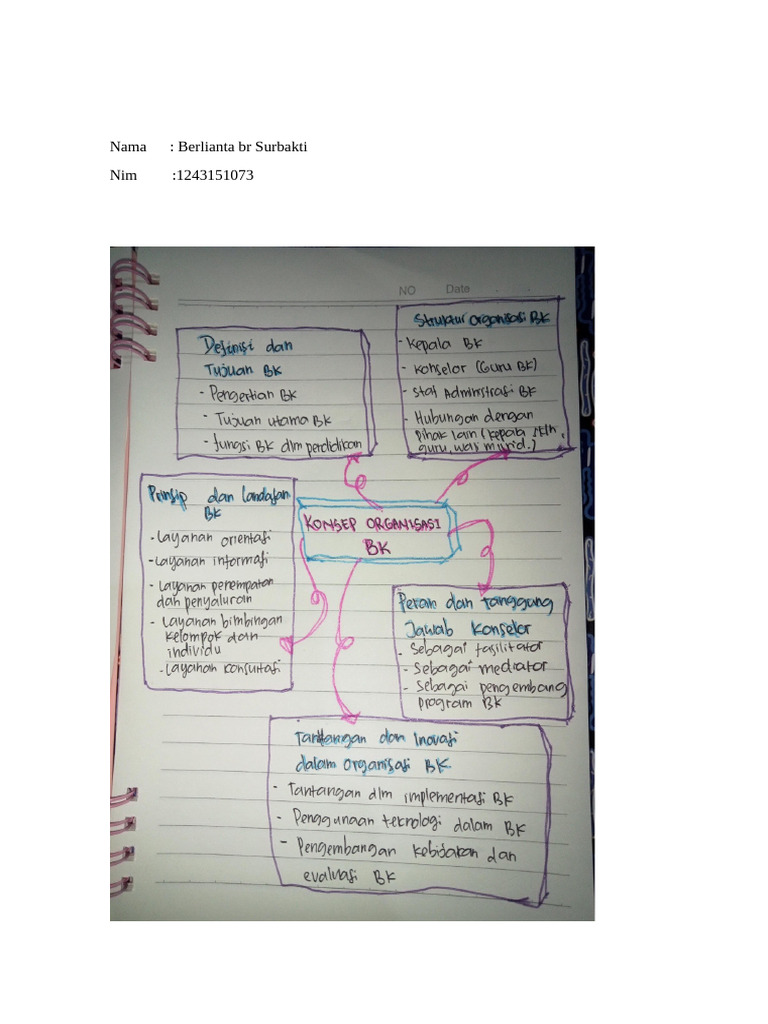 Nama : Berlianta br Surbakti
Nim :1243151073
NO Date
Definisi dan
Tujuan BK
- Pengertian BK
- Tujuan utama BK
- fungsi BK dlm perdidikan
Struktur organisasi BK
- Kepala BK
- Konselor (Guru BK)
- Staf Administrasi BK
- Hubungan dengan
pihak lain (kepala sklh,
guru, wali murid.)
Prinsip dan landasan
BK
- Layanan orientasi
- Layanan informasi
- Layanan penempatan
dan penyaluran
- Layanan bimbingan
kelompok dan
individu
- Layanan konsultasi
KONSEP ORGANISASI
BK
Peran dan Tanggung
Jawab Konselor
- Sebagai fasilitator
- Sebagai mediator
- Sebagai pengembang
program BK
Tantangan dan Inovasi
dalam organisasi BK
- Tantangan dlm implementasi BK
- Penggunaan teknologi dalam BK
- Pengembangan kebijakan dan
evaluasi BK